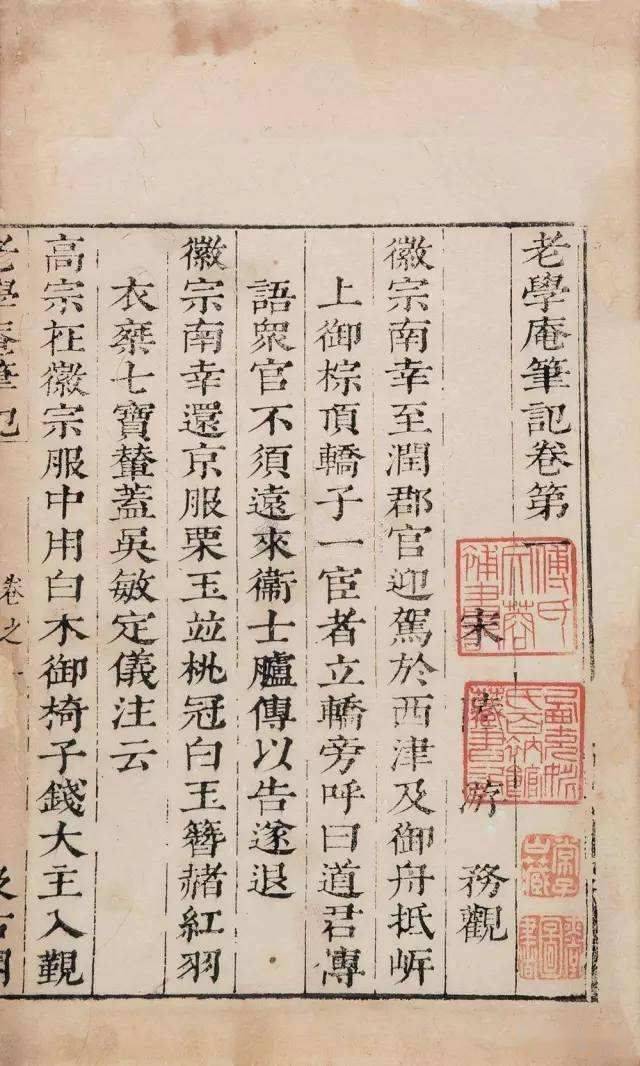 老學庵筆記卷第一
宋 陸游 務觀
徽宗南幸至潤郡官迎駕於西津及御舟抵岍
上御棕頂轎子一宦者立轎旁呼曰道君傳
語衆官不須遠來衞士臚傳以告遂退
徽宗南幸還京服栗玉並桃冠白玉簪赭紅羽
衣椉七寶輦蓋吳敏定儀注云
高宗在徽宗服中用白木御椅子錢大主入覲
老學庵筆記 卷之一